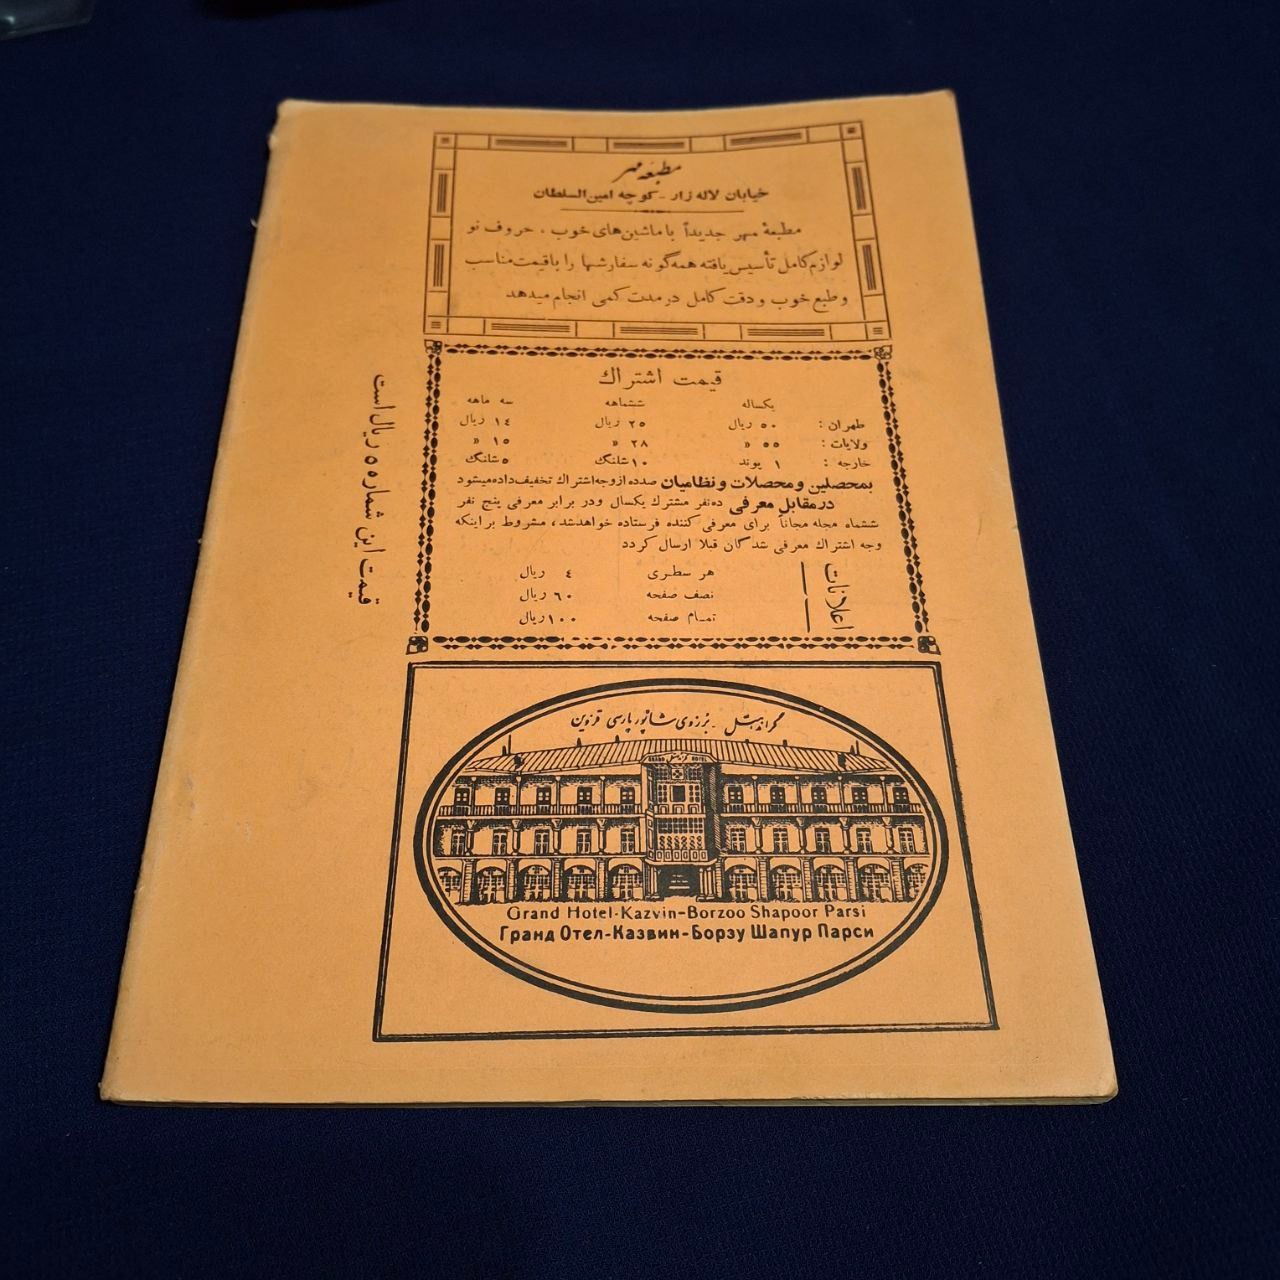 مطبعه مهر
خیابان لاله زار - کوچه امین السلطان
مطبعهٔ مهر جدیداً با ماشین‌های خوب، حروف نو
لوازم کامل تأسیس یافته همه گونه سفارشها را با قیمت مناسب
و طبع خوب و دقت کامل در مدت کمی انجام میدهد
قیمت اشتراك
یکساله ششماهه سه ماهه
طهران: ۵۰ ریال ۲۵ ریال ۱۴ ریال
ولایات: ۵۵ « ۲۸ « ۱۵ «
خارجه: ۱ پوند ۱۰ شلنگ ۵ شلنگ
بمحصلین و محصلات و نظامیان صدده از وجه اشتراك تخفیف داده میشود
در مقابل معرفی ده نفر مشترك یکسال و در برابر معرفی پنج نفر
ششماه مجله مجاناً برای معرفی کننده فرستاده خواهد شد، مشروط بر اینکه
وجه اشتراك معرفی شدگان قبلا ارسال گردد
اعلانات
هر سطری ۴ ریال
نصف صفحه ۶۰ ریال
تمام صفحه ۱۰۰ ریال
قیمت این شماره ۵ ریال است
گراند هتل - برزوی شاپور پارسی قزوین
گراند هتل
GRAND HOTEL
Grand Hotel-Kazvin-Borzoo Shapoor Parsi
Гранд Отел-Казвин-Борзу Шапур Парси